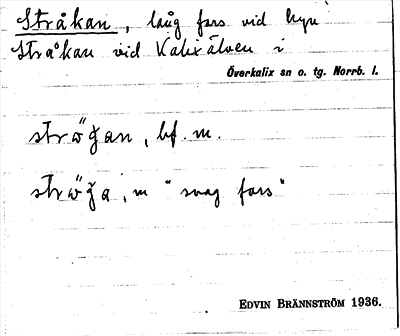 Stråkan, lång fors vid byn
Stråkan vid Kalixälven i
Överkalix sn o. tg. Norrb. l.
strö̆ǧan, bf. m.
strö̆ǧa, m "svag fors"
EDVIN BRÄNNSTRÖM 1936.